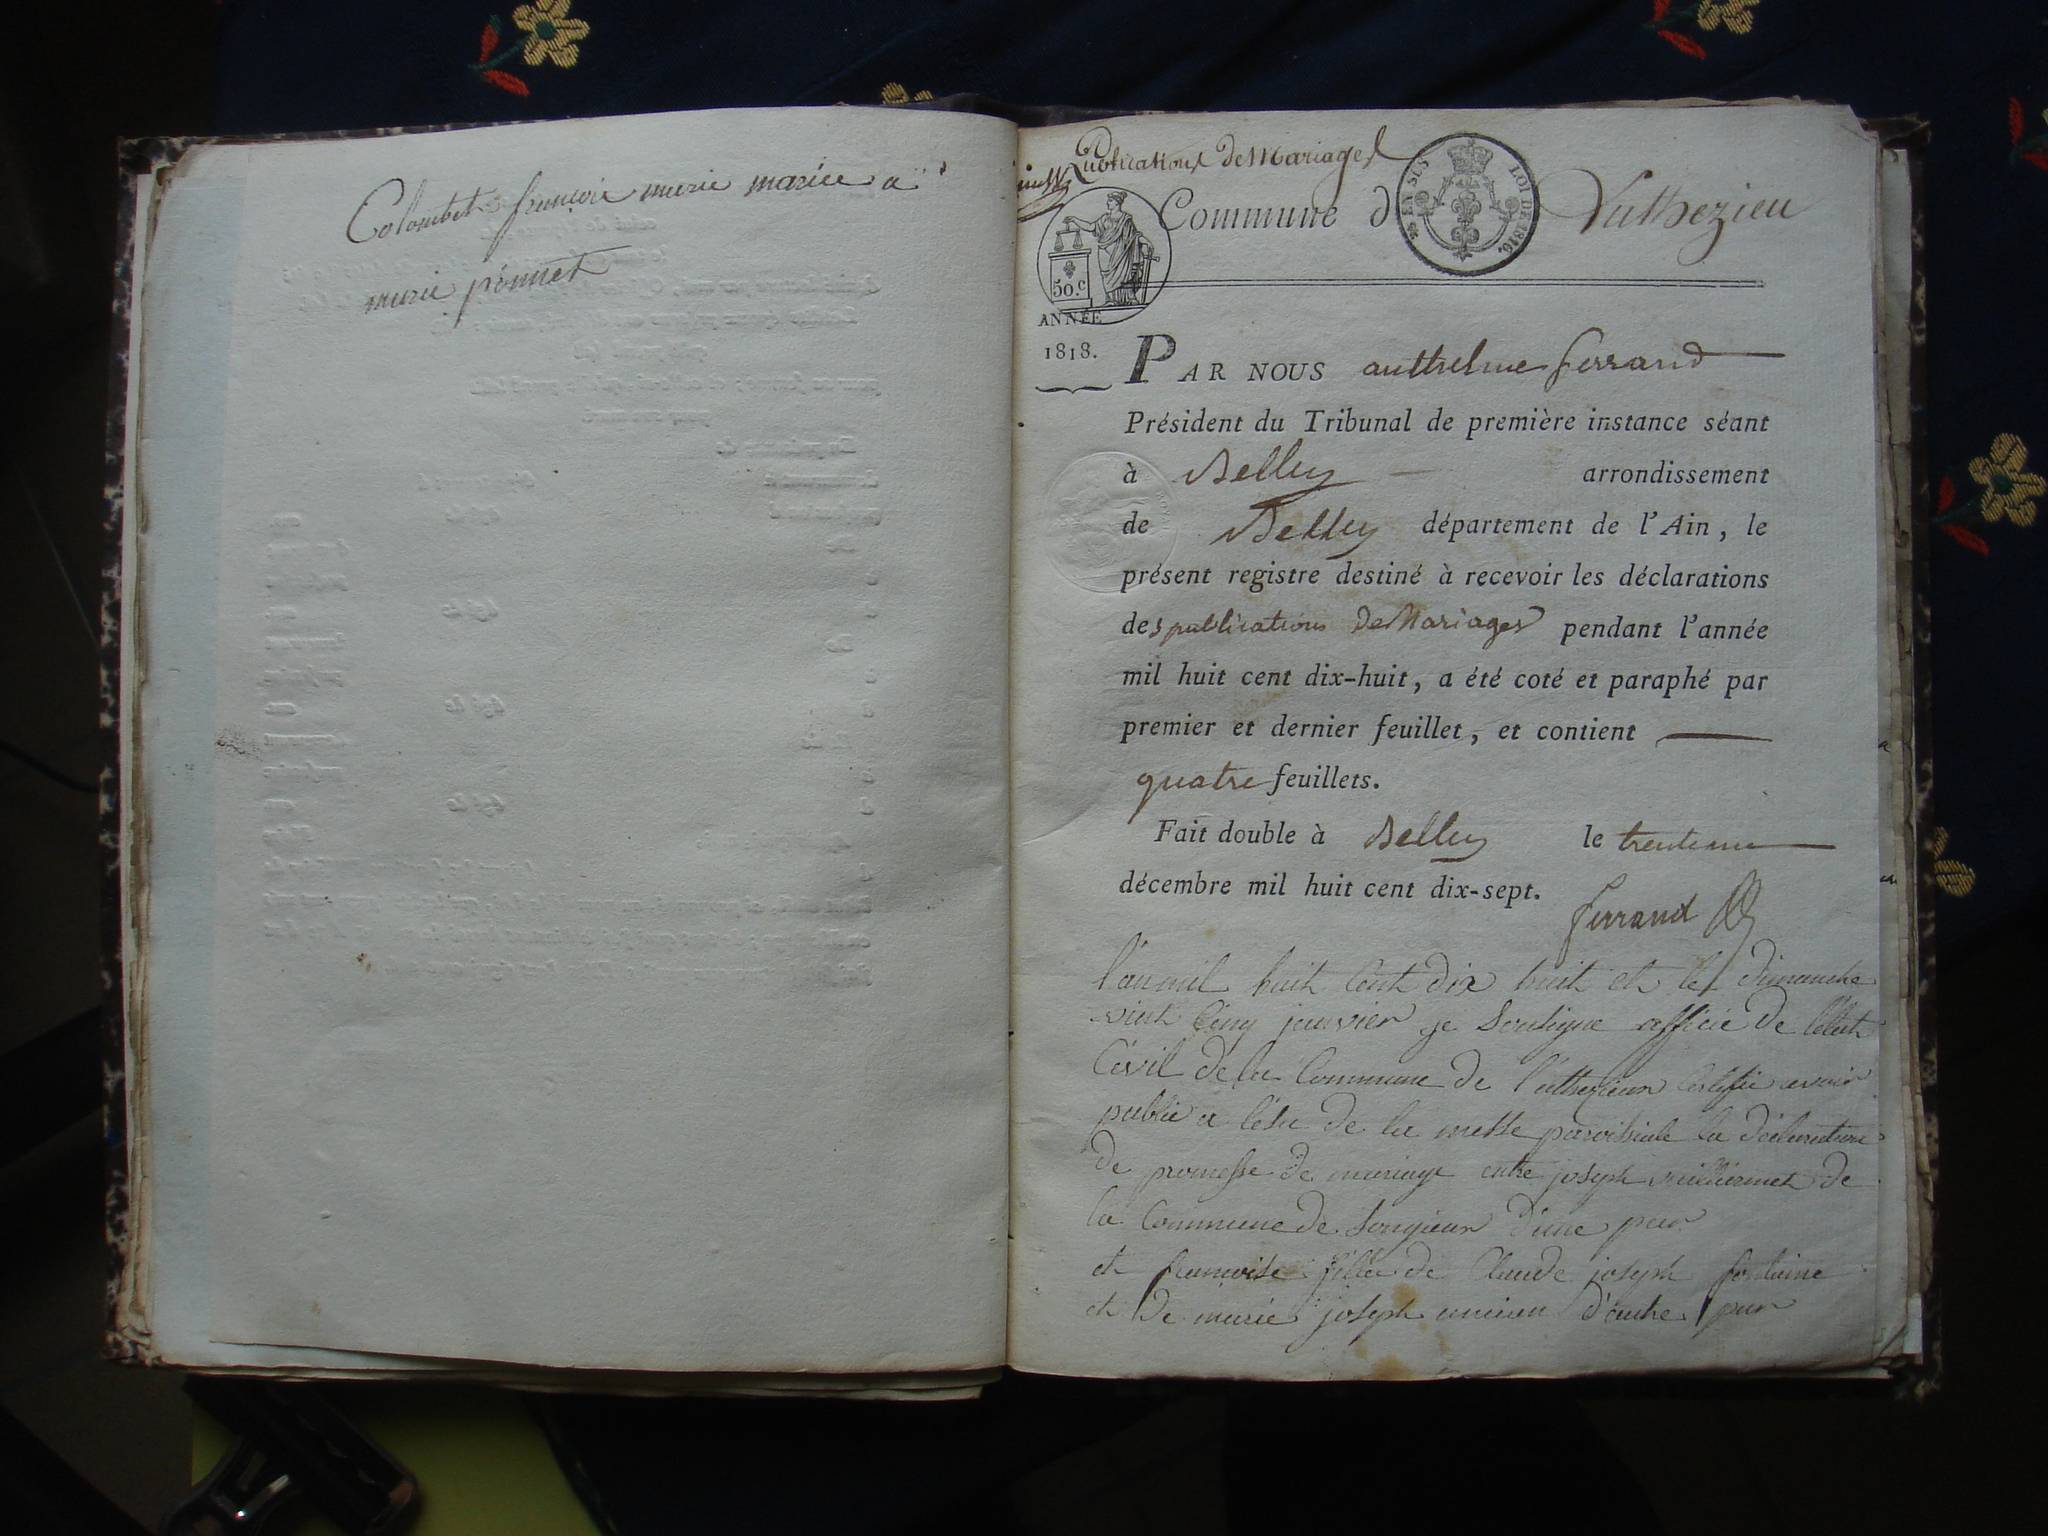 Colombet françois murie mariée a
murie ponnet
Publications de Mariages
Commune d Vuthezieu
EN SUS LOI DE 1816.
50.c
ANNÉE
1818.
PAR NOUS anthelme ferrand
Président du Tribunal de première instance séant
à Belley arrondissement
de Belley département de l'Ain, le
présent registre destiné à recevoir les déclarations
des publications de Mariages pendant l'année
mil huit cent dix-huit, a été coté et paraphé par
premier et dernier feuillet, et contient
quatre feuillets.
Fait double à Belley le trente un
décembre mil huit cent dix-sept.
ferrand
l'an mil huit Cent dix huit et le dimanche
vint Cinq janvier je Soutigne officie de l'état
Civil de la Commune de Certifie avoir
publié a l'esu de la messe paroissiale la declaration
de promesse de mariage entre joseph de
la Commune de Songieux d'une par
et francoise fille de Claude joseph fontaine
et de marie joseph d'autre par